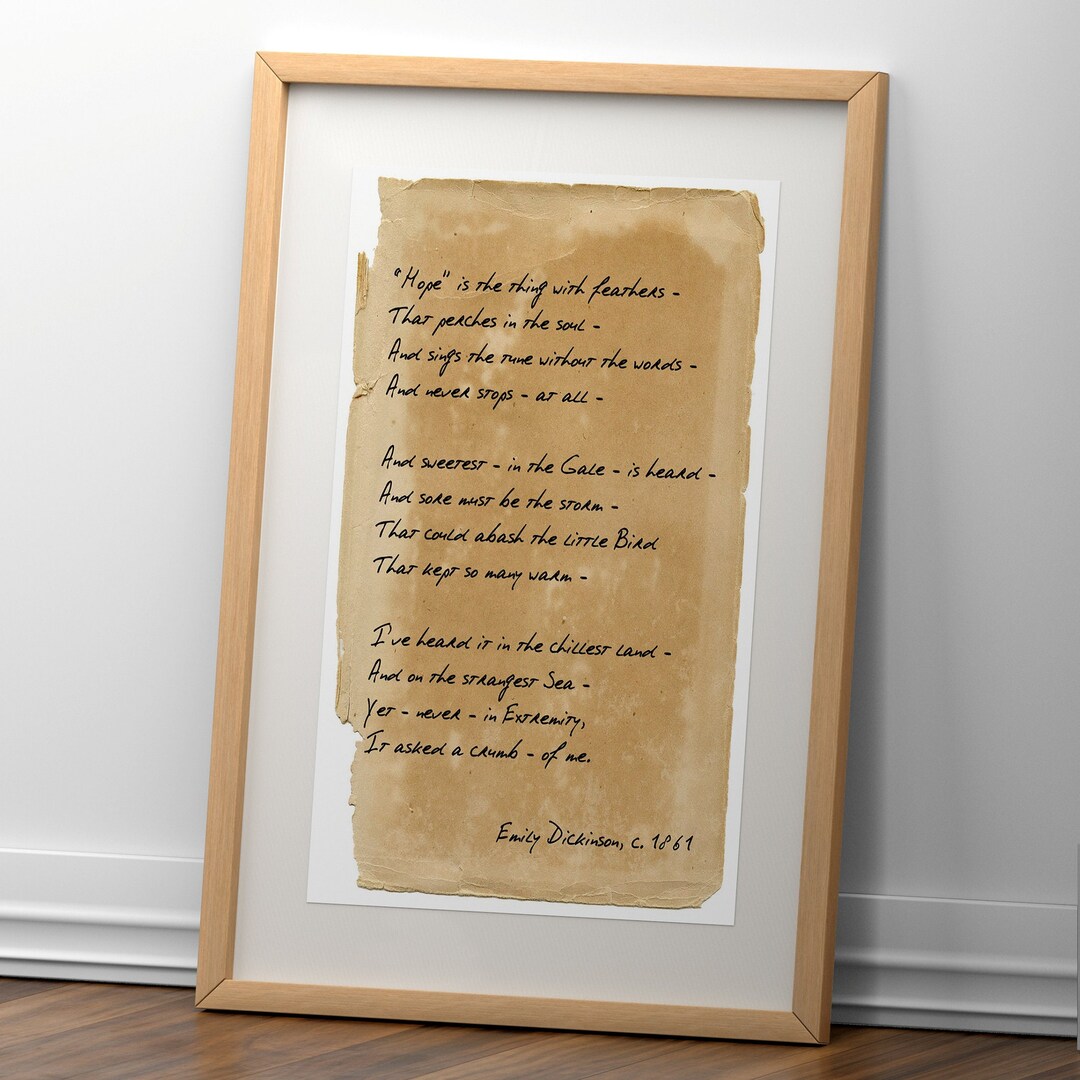 "Hope" is the thing with feathers -
That perches in the soul -
And sings the tune without the words -
And never stops - at all -
And sweetest - in the Gale - is heard -
And sore must be the storm -
That could abash the little Bird
That kept so many warm -
I've heard it in the chillest land -
And on the strangest Sea -
Yet - never - in Extremity,
It asked a crumb - of me.
Emily Dickinson, c. 1861